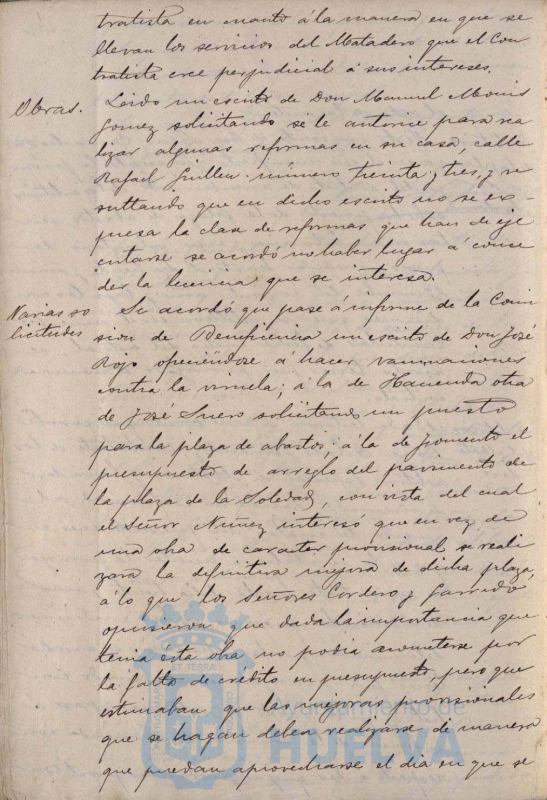 tratista en cuanto á la manera en que se
llevan los servicios del Matadero que el Con
tratista cree perjudicial á sus intereses.
Obras. Leido un escrito de Don Manuel Monis
Gomez solicitando se le autorice para rea
lizar algunas reformas en su casa, calle
Rafael Guillen número treinta y tres, y re
sultando que en dicho escrito no se ex-
presa la clase de reformas que han de eje
cutarse se acordó no haber lugar á conce
der la licencia que se interesa.
Varias so
licitudes
Se acordó que pase á informe de la Comi
sion de Beneficencia un escrito de Don José
Rojo ofreciéndose á hacer vacunaciones
contra la viruela; á la de Hacienda otra
de José Suero solicitando un puesto
para la plaza de abastos; á la de fomento el
presupuesto de arreglo del pavimento de
la plaza de la Soledad, con vista del cual
el Señor Nuñez interesó que en vez de
una obra de caracter provisional se reali
zara la definitiva mejora de dicha plaza,
á lo que los Señores Cordero y Garrido
opusieron que dada la importancia que
tenia esta obra no podia acometerse por
la falta de crédito en presupuesto, pero que
estimaban que las mejoras provisionales
que se hagan deben realizarse de manera
que puedan aprovecharse el dia en que se
Ayuntamiento de
HUELVA